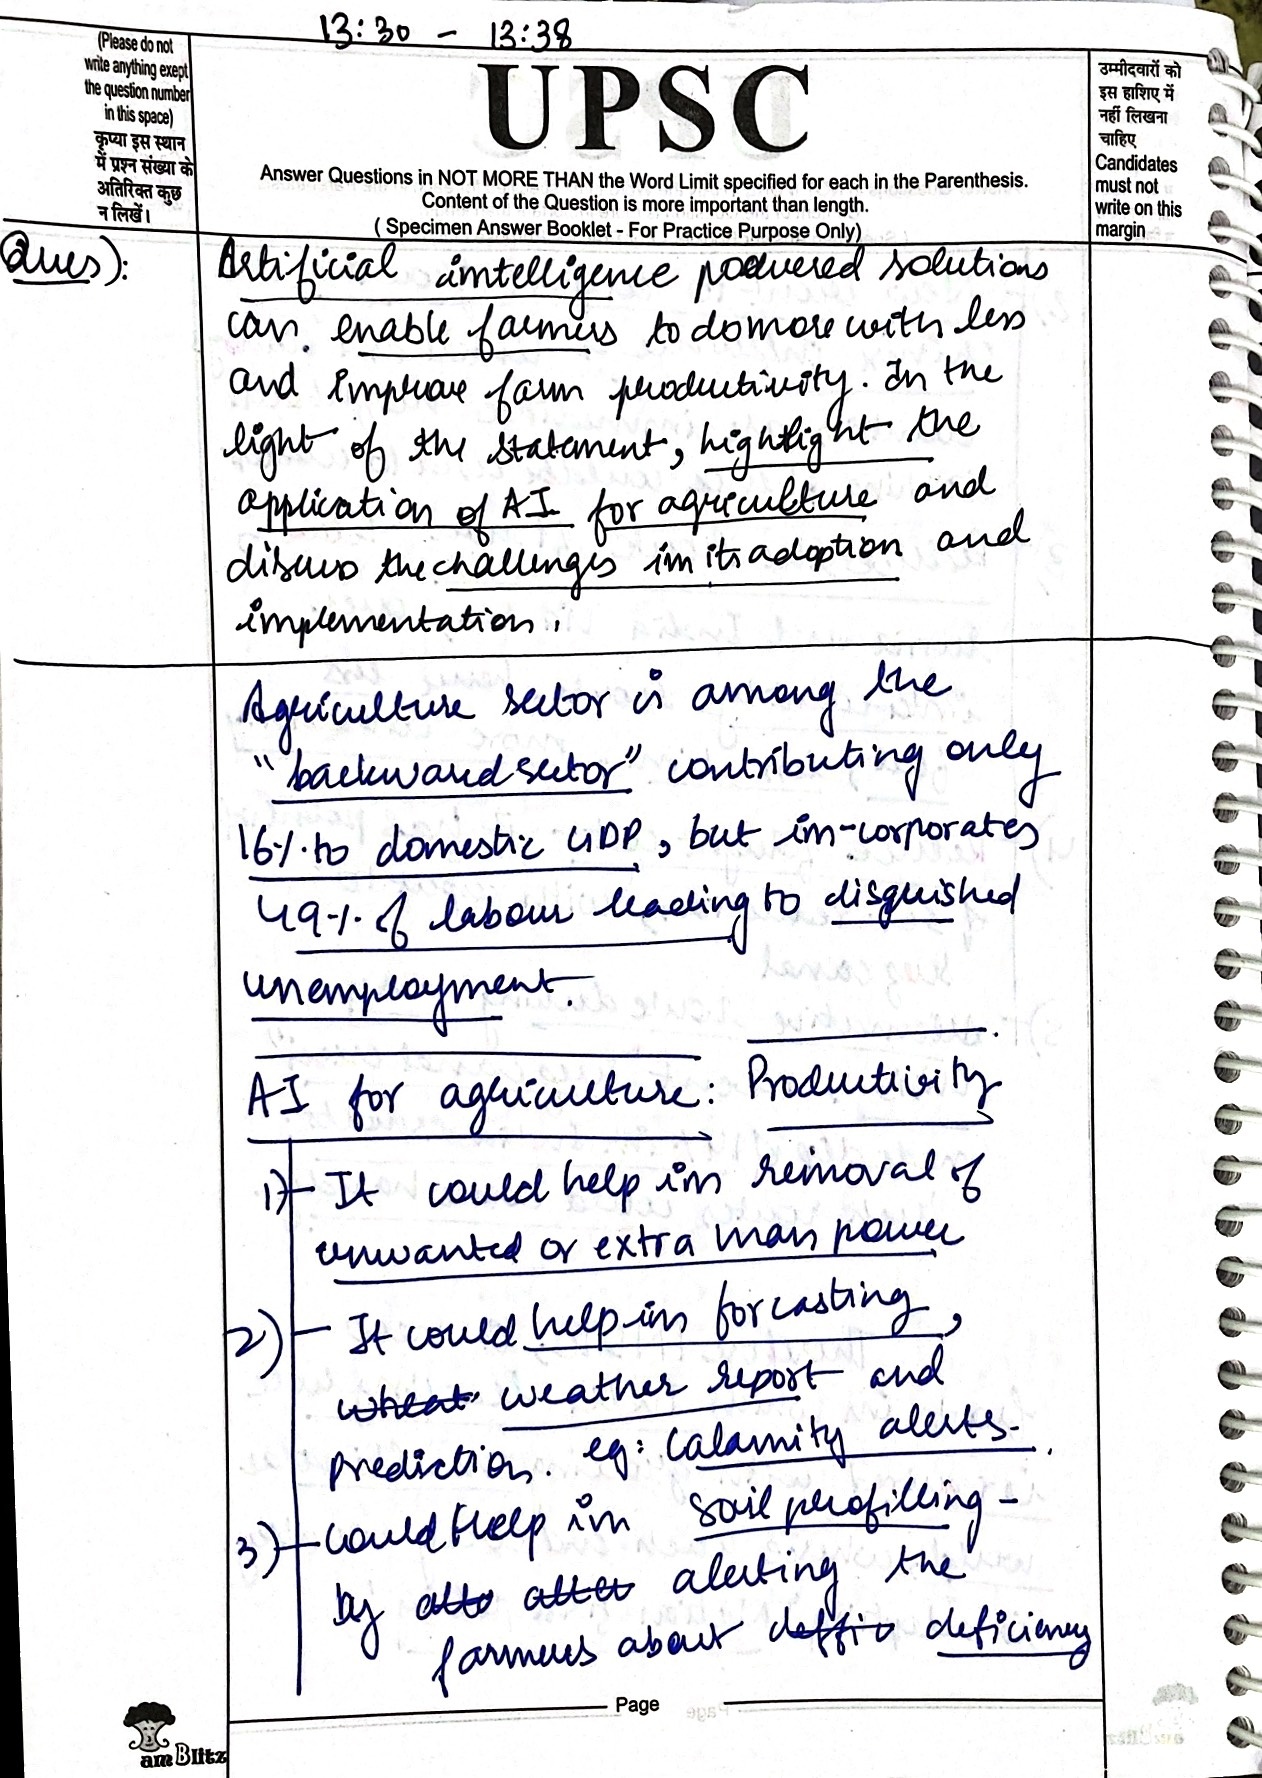 13:30 - 13:38
(Please do not
write anything exept
the question number
in this space)
कृप्या इस स्थान
में प्रश्न संख्या के
अतिरिक्त कुछ
न लिखें।
UPSC
Answer Questions in NOT MORE THAN the Word Limit specified for each in the Parenthesis.
Content of the Question is more important than length.
( Specimen Answer Booklet - For Practice Purpose Only)
उम्मीदवारों को
इस हाशिए में
नहीं लिखना
चाहिए
Candidates
must not
write on this
margin
Ques):
Artificial intelligence powered solutions
can enable farmers to do more with less
and improve farm productivity. In the
light of the statement, highlight the
application of AI for agriculture and
discuss the challenges in its adoption and
implementation.
Agriculture sector is among the
"backward sector" contributing only
16% to domestic GDP, but in-corporates
49% of labour leading to disguished
unemployment.
AI for agriculture: Productivity
1) - It could help in removal of
unwanted or extra man power
2) - It could help in forcasting,
wheat weather report and
prediction. eg: Calamity alerts.
3) - Could help in soil profilling -
by alerting the
farmers about deffic deficiency
Page
amBlitz